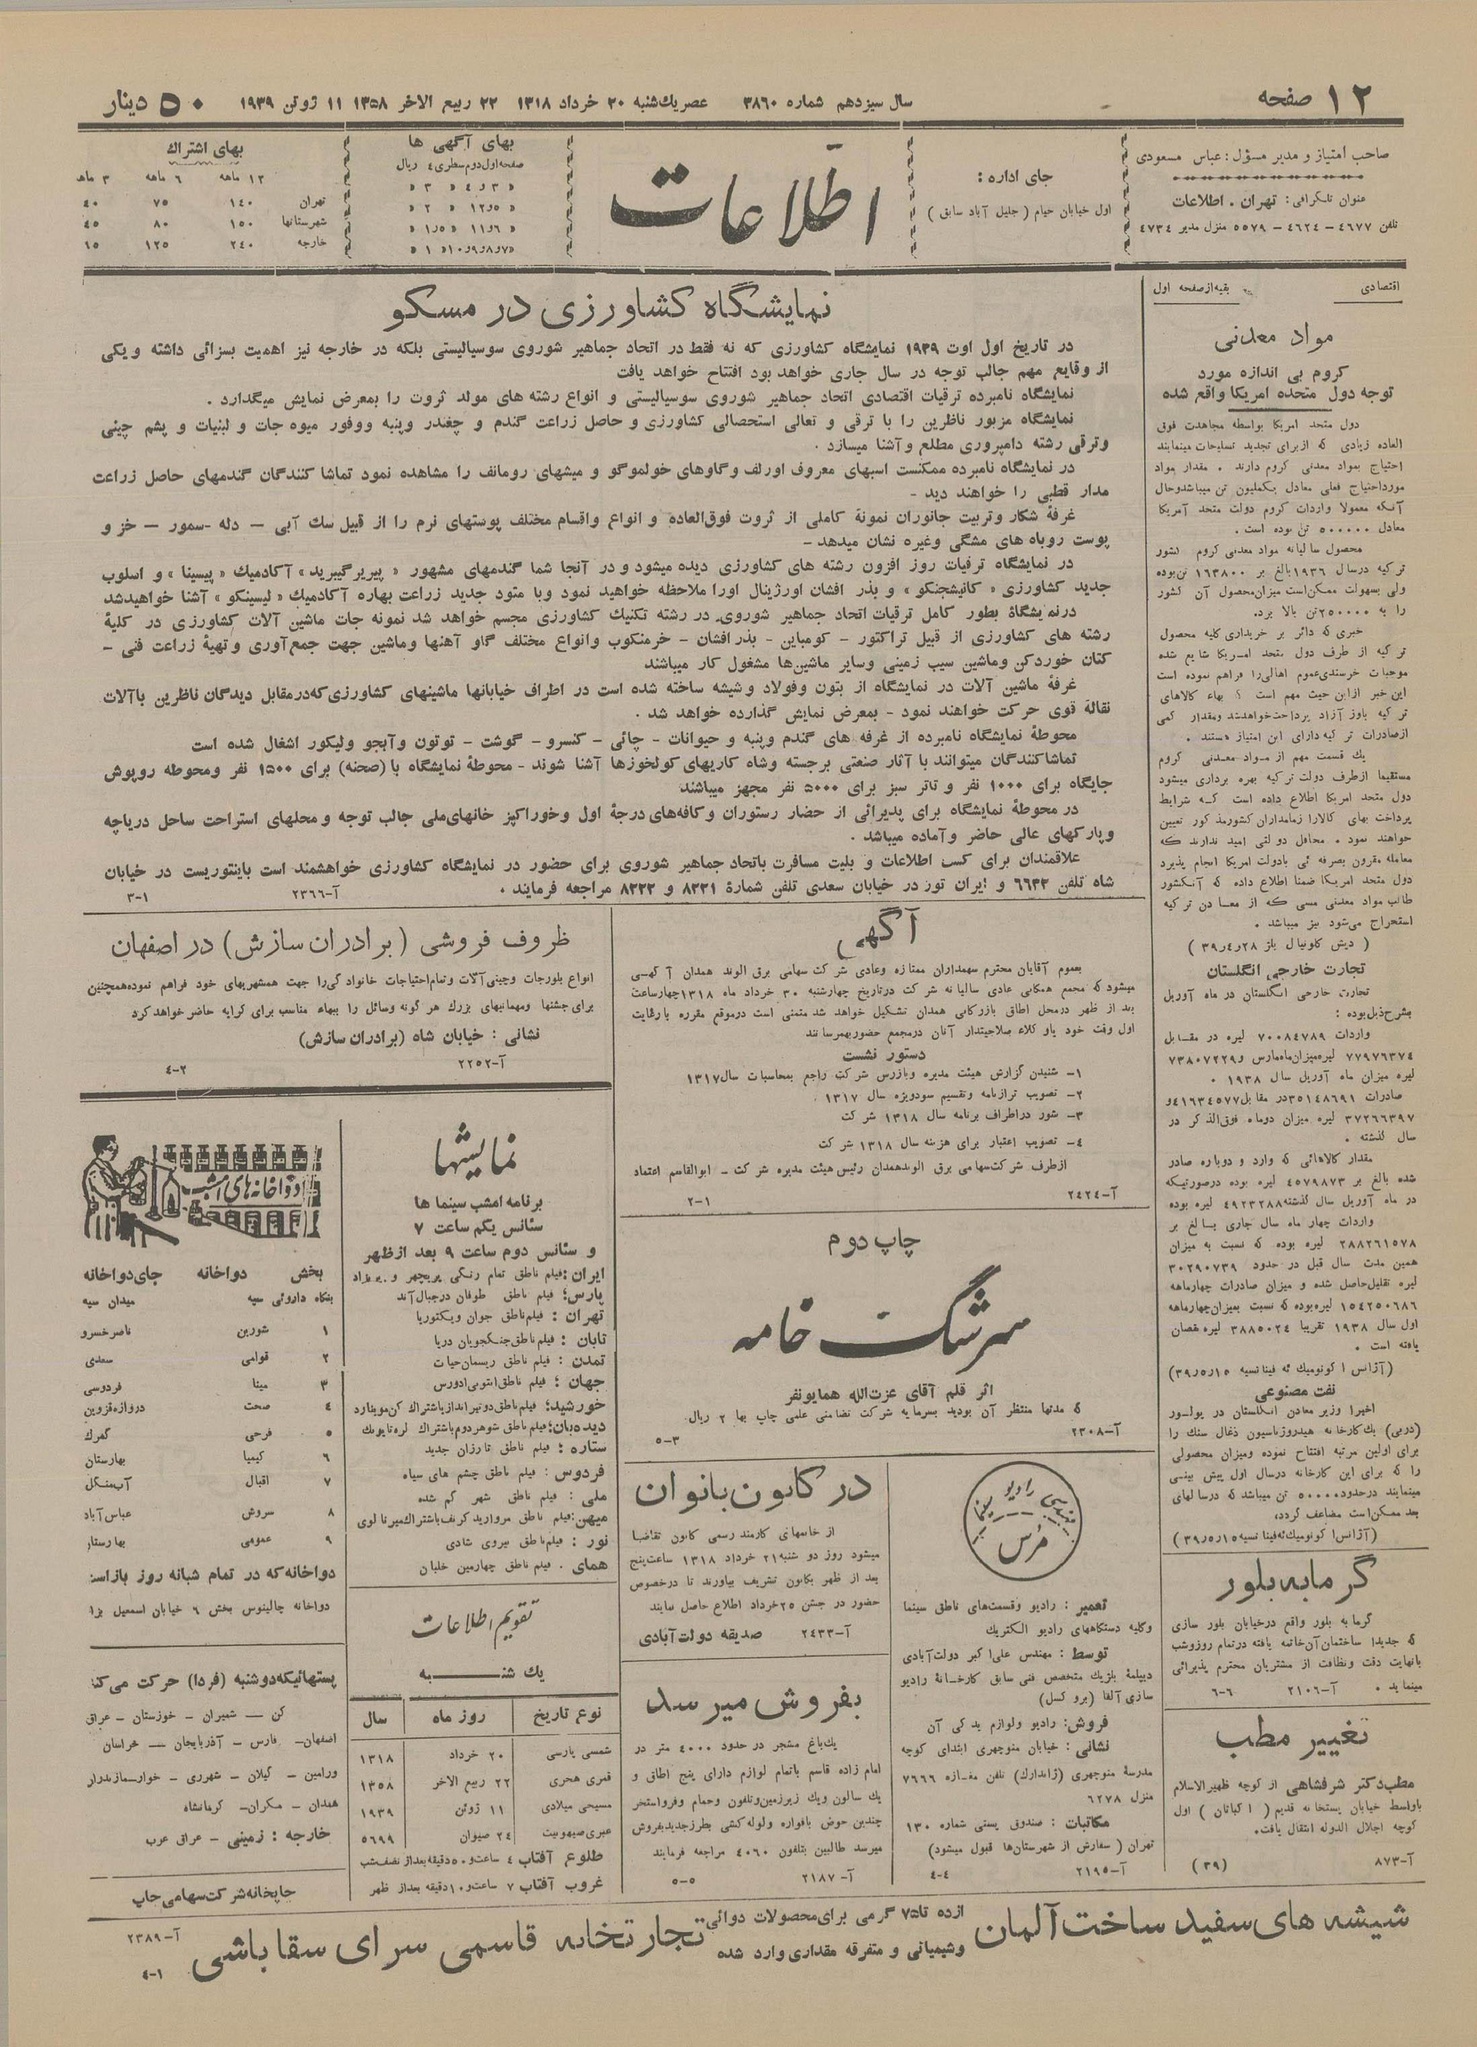 ۱۲ صفحه
سال سیزدهم شماره ۳۸۶۰ عصر یك‌شنبه ۲۰ خرداد ۱۳۱۸ ۲۲ ربیع الاخر ۱۳۵۸ ۱۱ ژوئن ۱۹۳۹
۵۰ دینار
صاحب امتیاز و مدیر مسؤل: عباس مسعودی
عنوان تلگرافی: تهران . اطلاعات
تلفن ۴۶۷۷ - ۴۶۲۴ - ۵۵۷۹ منزل مدیر ۴۷۳۴
جای اداره:
اول خیابان خیام ( جلیل آباد سابق )
اطلاعات
بهای آگهی ها
صفحه اول دوم سطری ۴ ریال
» ۳ و ۴ » ۳ »
» ۵ و ۱۲ » ۲ »
» ۶ و ۱۱ » ۱ر۵ »
» ۷ و ۸ و ۹ و ۱۰ » ۱ »
بهای اشتراك
۱۲ ماهه ۶ ماهه ۳ ماهه
تهران ۱۴۰ ۷۵ ۴۰
شهرستانها ۱۵۰ ۸۰ ۴۵
خارجه ۲۴۰ ۱۲۵ ۶۵
اقتصادی
بقیه از صفحه اول
مواد معدنی
کروم بی اندازه مورد
توجه دول متحده امریکا واقع شده
دول متحد امریکا بواسطه مجاهدت فوق
العاده زیادی که از برای تجدید تسلیحات مینمایند
احتیاج بمواد معدنی کروم دارند . مقدار مواد
مورد احتیاج فعلی معادل یکملیون تن میباشد و حال
آنکه معمولا واردات کروم دولت متحد آمریکا
معادل ۵۰۰۰۰۰ تن بوده است .
محصول سالیانه مواد معدنی کروم کشور
ترکیه در سال ۱۹۳۶ بالغ بر ۱۶۳۸۰۰ تن بوده
ولی بسهولت ممکن است میزان محصول آن کشور
را به ۲۵۰۰۰۰ تن بالا برد.
خبری که دائر بر خریداری کلیه محصول
ترکیه از طرف دول متحد امریکا شایع شده
موجبات خرسندی عموم اهالی را فراهم نموده است
این خبر از این حیث مهم است ؟ بهاء کالاهای
ترکیه باوز آزاد پرداخت خواهد شد و مقدار کمی
از صادرات ترکیه دارای این امتیاز هستند .
یك قسمت مهم از مواد معدنی کروم
مستقیما از طرف دولت ترکیه بهره برداری میشود
دول متحد امریکا اطلاع داده است که شرایط
پرداخت بهای کالارا زمامداران کشور مذکور تعیین
خواهند نمود . محافل دولتی امید ندارند که
معامله مقرون بصرفه ئی با دولت امریکا انجام پذیرد
دول متحد امریکا ضمنا اطلاع داده که آنکشور
طالب مواد معدنی مسی که از معادن ترکیه
استخراج می‌شود نیز میباشد .
( دیش کلونیال بلژ ۲۸ر۴ر۳۹ )
تجارت خارجی انگلستان
تجارت خارجی انگلستان در ماه آوریل
بشرح ذیل بوده :
واردات ۷۰۰۸۴۷۸۹ لیره در مقابل
۷۷۹۷۶۳۷۴ لیره میزان ماه مارس و ۷۳۸۰۷۲۲۹
لیره میزان ماه آوریل سال ۱۹۳۸ .
صادرات ۳۵۱۴۸۶۹۱ در مقابل ۴۱۶۳۴۵۷۷ و
۳۷۲۶۶۳۹۷ لیره میزان دو ماه فوق الذکر در
سال گذشته .
مقدار کالاهائی که وارد و دوباره صادر
شده بالغ بر ۴۵۷۹۸۷۳ لیره بوده در صورتیکه
در ماه آوریل سال گذشته ۴۹۲۳۲۸۸ لیره بوده
واردات چهار ماه سال جاری بالغ بر
۲۸۸۲۶۱۵۷۸ لیره بوده که نسبت به میزان
همین مدت سال قبل در حدود ۳۰۲۹۰۷۳۹
لیره تقلیل حاصل شده و میزان صادرات چهارماهه
۱۵۴۲۵۰۶۸۶ لیره بوده که نسبت بمیزان چهارماهه
اول سال ۱۹۳۸ تقریبا ۳۸۸۵۰۲۴ لیره نقصان
یافته است .
(آژانس اکونومیك ئه فینانسیه ۱۵ر۵ر۳۹)
نفت مصنوعی
اخیرا وزیر معادن انگلستان در بولسور
(دربی) یك کارخانه هیدروژناسیون ذغال سنك را
برای اولین مرتبه افتتاح نموده و میزان محصولی
را که برای این کارخانه در سال اول پیش بینی
مینمایند در حدود ۵۰۰۰۰ تن میباشد که در سالهای
بعد ممکن است مضاعف گردد.
(آژانس اکونومیك ئه فینانسیه ۱۵ر۵ر۳۹)
گرمابه بلور
گرمابه بلور واقع در خیابان بلور سازی
که جدیدا ساختمان آن خاتمه یافته در تمام روز و شب
با نهایت دقت و نظافت از مشتریان محترم پذیرائی
مینماید . آ-۲۱۰۶ ۶-۶
تغییر مطب
مطب دکتر شرفشاهی از کوچه ظهیرالاسلام
باواسط خیابان پستخانه قدیم ( اکباتان ) اول
کوچه اجلال الدوله انتقال یافت.
آ-۸۷۳ (۳۹)
نمایشگاه کشاورزی در مسکو
در تاریخ اول اوت ۱۹۳۹ نمایشگاه کشاورزی که نه فقط در اتحاد جماهیر شوروی سوسیالیستی بلکه در خارجه نیز اهمیت بسزائی داشته و یکی
از وقایع مهم جالب توجه در سال جاری خواهد بود افتتاح خواهد یافت
نمایشگاه نامبرده ترقیات اقتصادی اتحاد جماهیر شوروی سوسیالیستی و انواع رشته های مولد ثروت را بمعرض نمایش میگذارد .
نمایشگاه مزبور ناظرین را با ترقی و تعالی استحصالی کشاورزی و حاصل زراعت گندم و چغندر و پنبه و وفور میوه جات و لبنیات و پشم چینی
و ترقی رشته دامپروری مطلع و آشنا میسازد .
در نمایشگاه نامبرده ممکنست اسبهای معروف اورلف و گاوهای خولموگو و میشهای رومانف را مشاهده نمود تماشا کنندگان گندمهای حاصل زراعت
مدار قطبی را خواهند دید -
غرفهٔ شکار و تربیت جانوران نمونهٔ کاملی از ثروت فوق‌العاده و انواع و اقسام مختلف پوستهای نرم را از قبیل سك آبی - دله - سمور - خز و
پوست روباه های مشگی و غیره نشان میدهد -
در نمایشگاه ترقیات روز افزون رشته های کشاورزی دیده میشود و در آنجا شما گندمهای مشهور « پیریر گیبرید» آکادمیك «پیسینا» و اسلوب
جدید کشاورزی « کانیشجنکو» و بذر افشان اورژینال اورا ملاحظه خواهید نمود و با متود جدید زراعت بهاره آکادمیك «لیسینکو» آشنا خواهید شد
در نمایشگاهٔ بطور کامل ترقیات اتحاد جماهیر شوروی در رشته تکنیك کشاورزی مجسم خواهد شد نمونه جات ماشین آلات کشاورزی در کلیهٔ
رشته های کشاورزی از قبیل تراکتور - کومباین - بذر افشان - خرمنکوب و انواع مختلف گاو آهنها و ماشین جهت جمع آوری و تهیهٔ زراعت فنی -
کتان خوردکن و ماشین سیب زمینی و سایر ماشین‌ها مشغول کار میباشند
غرفهٔ ماشین آلات در نمایشگاه از بتون و فولاد و شیشه ساخته شده است در اطراف خیابانها ماشینهای کشاورزی که در مقابل دیدگان ناظرین با آلات
نقالهٔ قوی حرکت خواهند نمود - بمعرض نمایش گذارده خواهد شد .
محوطهٔ نمایشگاه نامبرده از غرفه های گندم و پنبه و حیوانات - چائی - کنسرو - گوشت - توتون و آبجو و لیکور اشغال شده است
تماشاکنندگان میتوانند با آثار صنعتی برجسته و شاه کاریهای کولخوزها آشنا شوند - محوطهٔ نمایشگاه با (صحنه) برای ۱۵۰۰ نفر و محوطه روپوش
جایگاه برای ۱۰۰۰ نفر و تاتر سبز برای ۵۰۰۰ نفر مجهز میباشند
در محوطهٔ نمایشگاه برای پذیرائی از حضار رستوران و کافه‌های درجهٔ اول و خوراکپز خانهای ملی جالب توجه و محلهای استراحت ساحل دریاچه
و پارکهای عالی حاضر و آماده میباشد .
علاقمندان برای کسب اطلاعات و بلیت مسافرت باتحاد جماهیر شوروی برای حضور در نمایشگاه کشاورزی خواهشمند است باینتوریست در خیابان
شاه تلفن ۶۶۳۲ و ایران تور در خیابان سعدی تلفن شمارهٔ ۸۲۲۱ و ۸۲۲۲ مراجعه فرمایند . آ-۲۳۶۶ ۳-۱
آگهی
بعموم آقایان محترم سهمداران ممتازه و عادی شرکت سهامی برق الوند همدان آگهی
میشود که مجمع همگانی عادی سالیانه شرکت در تاریخ چهارشنبه ۳۰ خرداد ماه ۱۳۱۸ چهار ساعت
بعد از ظهر در محل اطاق بازرگانی همدان تشکیل خواهد شد متمنی است در موقع مقرره با رعایت
اول وقت خود یا وکلاء صلاحیتدار آنان در مجمع حضور بهمرسانند
دستور نشست
۱- شنیدن گزارش هیئت مدیره و بازرس شرکت راجع بمحاسبات سال ۱۳۱۷
۲- تصویب ترازنامه و تقسیم سود ویژه سال ۱۳۱۷ .
۳- شور در اطراف برنامه سال ۱۳۱۸ شرکت
۴- تصویب اعتبار برای هزینه سال ۱۳۱۸ شرکت
از طرف شرکت سهامی برق الوند همدان رئیس هیئت مدیره شرکت - ابوالقاسم اعتماد
آ-۲۴۲۴ ۲-۱
چاپ دوم
سرشگ خامه
اثر قلم آقای عزت‌الله همایونفر
که مدتها منتظر آن بودید بسرمایه شرکت تضامنی علمی چاپ بها ۲ ریال.
آ-۲۳۰۸ ۵-۳
مهندسی رادیو سینما
مُرس
تعمیر : رادیو و قسمت‌های ناطق سینما
و کلیه دستگاههای رادیو الکتریك
توسط : مهندس علی اکبر دولت آبادی
دیپلمهٔ بلژیك متخصص فنی سابق کارخانهٔ رادیو
سازی آلفا (بروکسل)
فروش: رادیو و لوازم یدکی آن
نشانی : خیابان منوچهری ابتدای کوچه
مدرسهٔ منوچهری (ژاندارك) تلفن مغازه ۷۶۶۶
منزل ۶۲۷۸
مکاتبات : صندوق پستی شماره ۱۳۰
تهران ( سفارش از شهرستان‌ها قبول میشود)
آ-۲۱۹۵ ۴-۴
در کانون بانوان
از خانمهای کارمند رسمی کانون تقاضا
میشود روز دو شنبه ۲۱ خرداد ۱۳۱۸ ساعت پنج
بعد از ظهر بکانون تشریف بیاورند تا درخصوص
حضور در جشن ۲۵ خرداد اطلاع حاصل نمایند
آ-۲۴۳۳ صدیقه دولت‌آبادی
بفروش میرسد
یك‌باغ مشجر در حدود ۴۰۰۰ متر در
امام زاده قاسم با تمام لوازم دارای پنج اطاق و
یك سالون و یك زیرزمین و تلفون و حمام و فر و استخر
چندین حوض بافواره و لوله‌کشی بطرز جدید بفروش
میرسد طالبین بتلفون ۴۰۶۰ مراجعه فرمایند
آ-۲۱۸۷ ۵-۵
ظروف فروشی (برادران سازش) در اصفهان
انواع بلورجات و چینی آلات و تمام احتیاجات خانوادگی را جهت همشهریهای خود فراهم نموده همچنین
برای جشنها و مهمانیهای بزرك هر گونه وسائل را ببهاء مناسب برای کرایه حاضر خواهد کرد
نشانی : خیابان شاه (برادران سازش)
آ-۲۲۵۲ ۴-۲
نمایشها
برنامه امشب سینما ها
سئانس یکم ساعت ۷
و سئانس دوم ساعت ۹ بعد از ظهر
ایران: فیلم ناطق تمام رنگی پریچهر و پریزاد
پارس: فیلم ناطق طوفان در جبال آند
تهران : فیلم ناطق جوان ویکتوریا
تابان : فیلم ناطق جنگجویان دریا
تمدن : فیلم ناطق ریسمان حیات
جهان : فیلم ناطق انتونی ادورس
خورشید: فیلم ناطق دو تیرانداز باشتراك کن موینارد
دیده‌بان: فیلم ناطق شوهر دوم باشتراك لرتا یونك
ستاره : فیلم ناطق تارزان جدید
فردوس : فیلم ناطق چشم های سیاه
ملی : فیلم ناطق شهر گم شده
میهن: فیلم ناطق مروارید کرنف باشتراك میرنا لوی
نور : فیلم ناطق نیروی شادی
همای . فیلم ناطق چهارمین خلبان
تقویم اطلاعات
یك شنبه
نوع تاریخ روز ماه سال
شمسی پارسی ۲۰ خرداد ۱۳۱۸
قمری هجری ۲۲ ربیع الاخر ۱۳۵۸
مسیحی میلادی ۱۱ ژوئن ۱۹۳۹
عبری صیهونیت ۲۴ صیوان ۵۶۹۹
طلوع آفتاب ۴ ساعت و ۵۰ دقیقه بعد از نصف شب
غروب آفتاب ۷ ساعت و ۱۰ دقیقه بعد از ظهر
دواخانه‌های امشب
بخش دواخانه جای دواخانه
بنگاه داروئی سپه میدان سپه
۱ شورین ناصرخسرو
۲ قوامی سعدی
۳ مینا فردوسی
۴ صحت دروازه قزوین
۵ فرحی گمرك
۶ کیمیا بهارستان
۷ اقبال آب منگل
۸ سروش عباس آباد
۹ عمومی بهارستان
دواخانه که در تمام شبانه روز باز است
دواخانه جالینوس بخش ۶ خیابان اسمعیل بزا
پستهائیکه دوشنبه (فردا) حرکت می‌کند
کن - شمیران - خوزستان - عراق
اصفهان- فارس - آذربایجان - خراسان
ورامین - گیلان - شهرری - خوار-مازندران
همدان - مکران- کرمانشاه
خارجه : زمینی - عراق عرب
چاپخانه شرکت سهامی چاپ
شیشه های سفید ساخت آلمان
از ده تا ۷۵ گرمی برای محصولات دوائی
و شیمیائی و متفرقه مقداری وارد شده
تجارتخانه قاسمی سرای سقا باشی
آ-۲۳۸۹
۴-۱